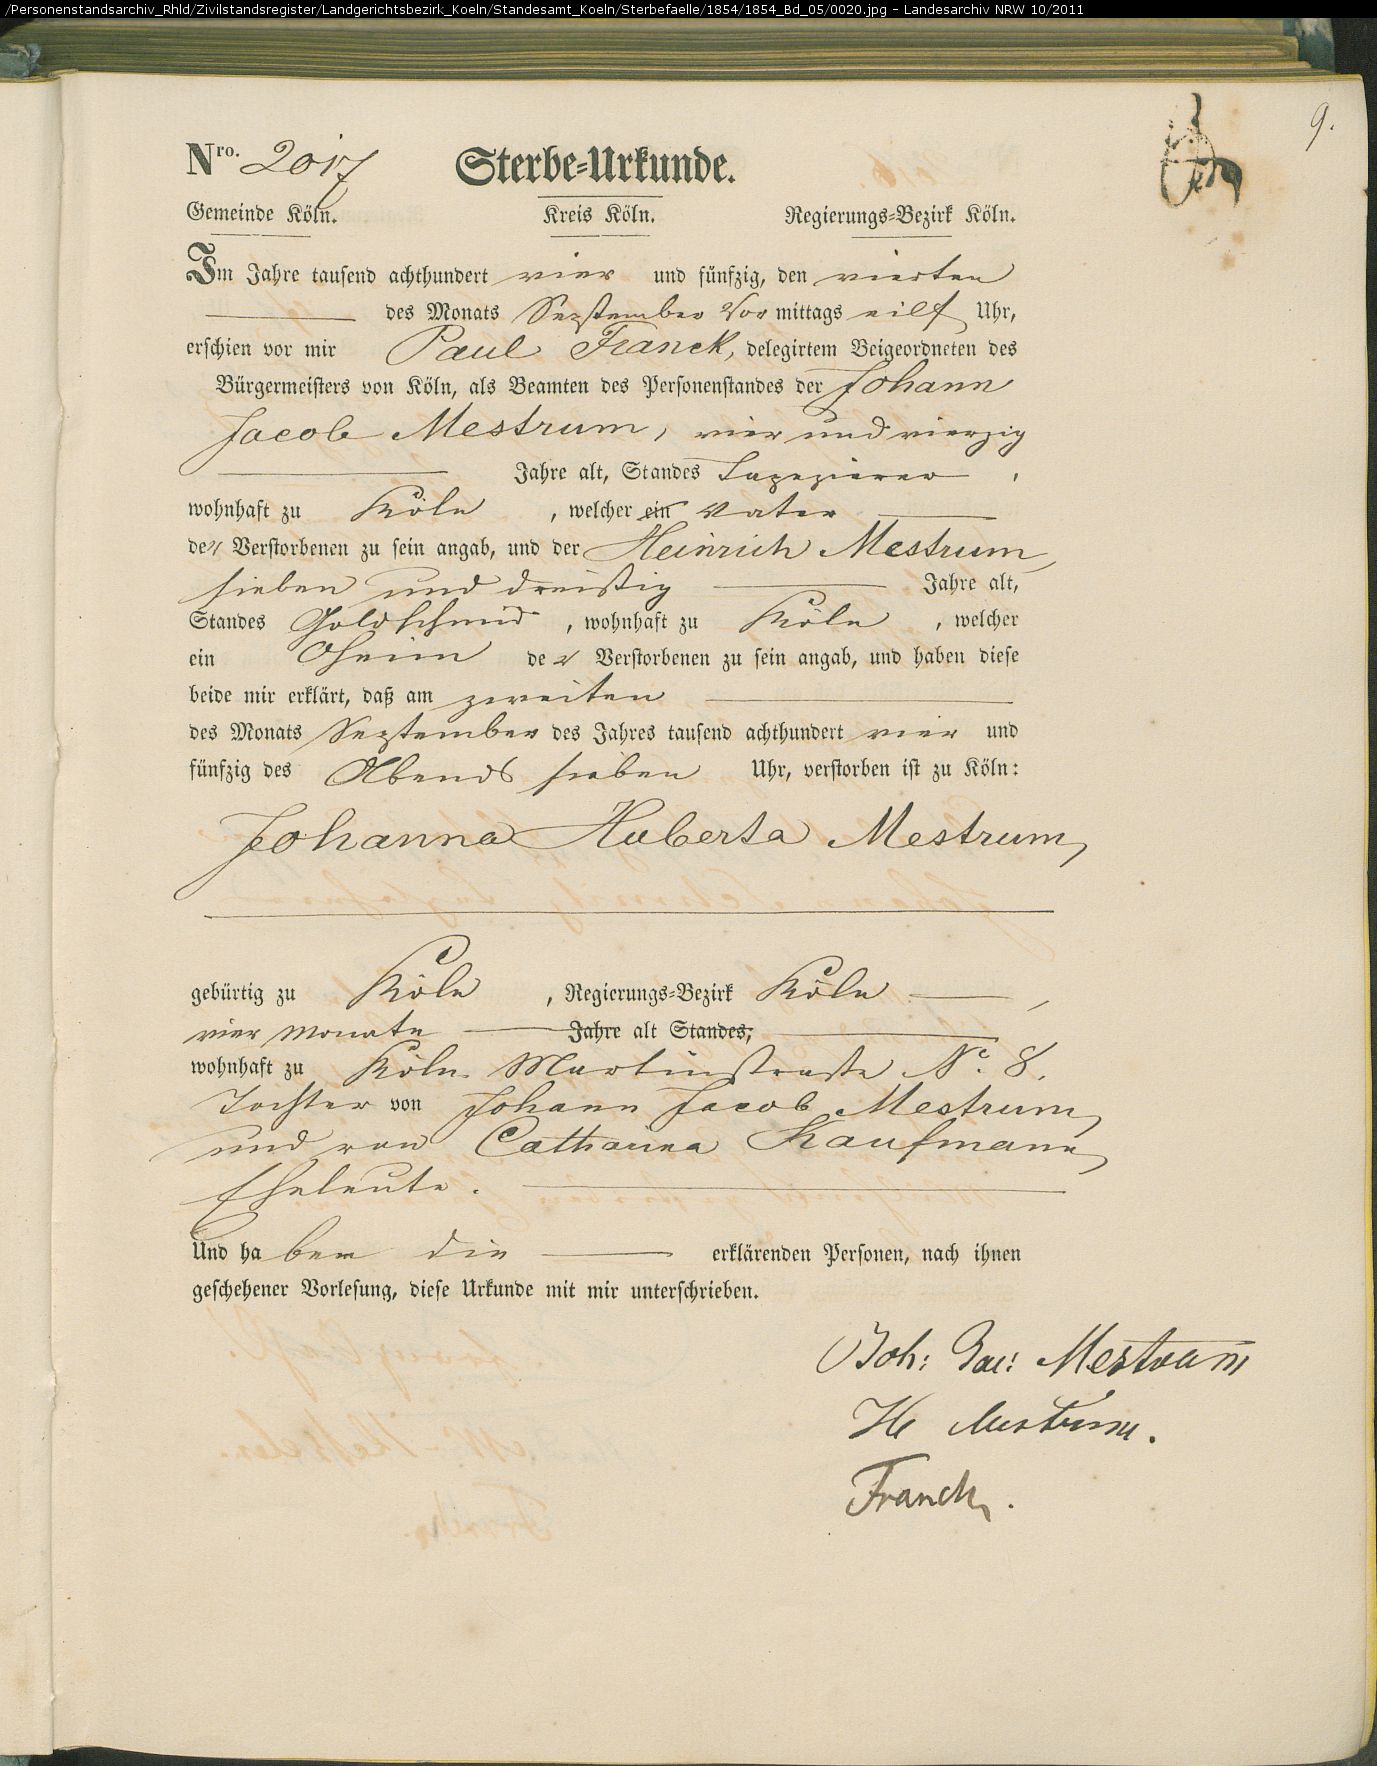 /Personenstandsarchiv_Rhld/Zivilstandsregister/Landgerichtsbezirk_Koeln/Standesamt_Koeln/Sterbefaelle/1854/1854_Bd_05/0020.jpg - Landesarchiv NRW 10/2011
9.
Nro. 2017 Sterbe-Urkunde.
Gemeinde Köln. Kreis Köln. Regierungs-Bezirk Köln.
Im Jahre tausend achthundert vier und fünfzig, den vierten
des Monats September Vor mittags eilf Uhr,
erschien vor mir Paul Franck, delegirtem Beigeordneten des
Bürgermeisters von Köln, als Beamten des Personenstandes der Johann
Jacob Mestrum, vier und vierzig
Jahre alt, Standes Tapezierer,
wohnhaft zu Köln, welcher ein Vater
der Verstorbenen zu sein angab, und der Heinrich Mestrum,
sieben und dreißig Jahre alt,
Standes Goldschmid, wohnhaft zu Köln, welcher
ein Oheim der Verstorbenen zu sein angab, und haben diese
beide mir erklärt, daß am zweiten
des Monats September des Jahres tausend achthundert vier und
fünfzig des Abends sieben Uhr, verstorben ist zu Köln:
Johanna Huberta Mestrum,
gebürtig zu Köln, Regierungs-Bezirk Köln,
vier Monate Jahre alt Standes,
wohnhaft zu Köln Martinstraße No. 8.
Tochter von Johann Jacob Mestrum,
und von Catharina Kaufmann,
Eheleute.
Und haben die erklärenden Personen, nach ihnen
geschehener Vorlesung, diese Urkunde mit mir unterschrieben.
Joh: Jac: Mestrum
H Mestrum.
Franck.